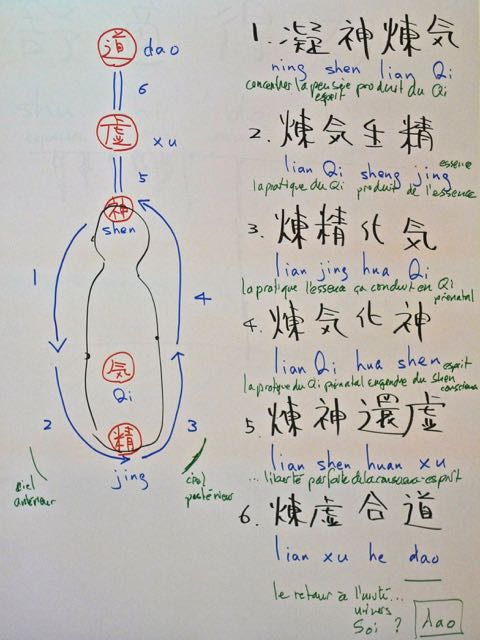 道 dao
6
虚 xu
5
神
shen
1
4
気
Qi
2
3
精
jing
ciel
antérieur
ciel
postérieur
1. 凝神煉気
ning shen lian Qi
concentrer la pensée produit du Qi
esprit
2. 煉気生精
lian Qi sheng jing
essence
la pratique du Qi produit de l'essence
3. 煉精化気
lian jing hua Qi
la pratique l'essence ça conduit en Qi
prénatal
4. 煉気化神
lian Qi hua shen
esprit
la pratique du Qi prénatal engendre du Shen
conscience
5. 煉神還虚
lian shen huan xu
... liberté parfaite de la conscience-esprit
6. 煉虚合道
lian xu he dao
le retour à l'unité...
univers
Soi ?
dao